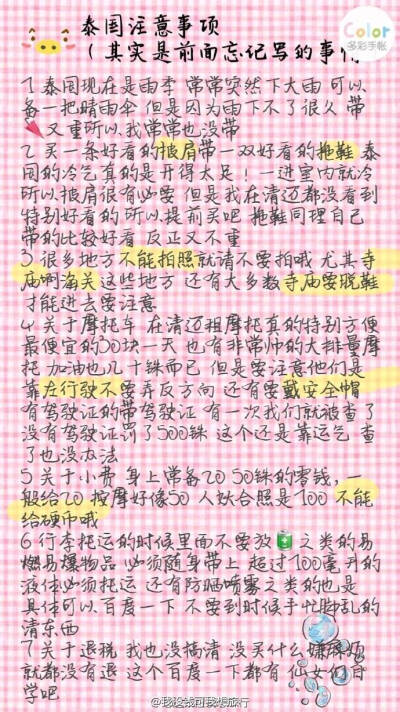 Color
多彩手帐
泰国注意事项
（其实是前面忘记写的事情
1 泰国现在是雨季 常常突然下大雨 可以
备一把晴雨伞 但是因为雨下不了很久 带
又重所以我常常也没带
2 买一条好看的披肩带一双好看的拖鞋 泰
国的冷气真的是开得太足！一进室内就冷
所以披肩很有必要 但是我在清迈都没看到
特别好看的 所以提前买吧 拖鞋同理自己
带的比较好看 反正又不重
3 很多地方不能拍照就请不要拍哦 尤其寺
庙啊海关这些地方 还有大多数寺庙要脱鞋
才能进去要注意
4 关于摩托车 在清迈租摩托真的特别方便
最便宜的30块一天 也有非常帅的大排量摩
托 加油也几十铢而已 但是要注意他们是
靠左行驶不要弄反方向 还有要戴安全帽
有驾驶证的带驾驶证 有一次我们就被查了
没有驾驶证罚了500铢 这个还是靠运气 查
了也没办法
5 关于小费 身上常备20 50铢的零钱，一
般给20 按摩好像50 人妖合照是100 不能
给硬币哦
6 行李托运的时候里面不要放 之类的易
燃易爆物品 必须随身带上 超过100毫升的
液体必须托运 还有防晒喷雾之类的也是
具体可以百度一下 不要到时候手忙脚乱的
清东西
7 关于退税 我也没搞清 没买什么嫌麻烦
就都没有退 这个百度一下都有 仙女们自
学吧
@我没钱可我想旅行